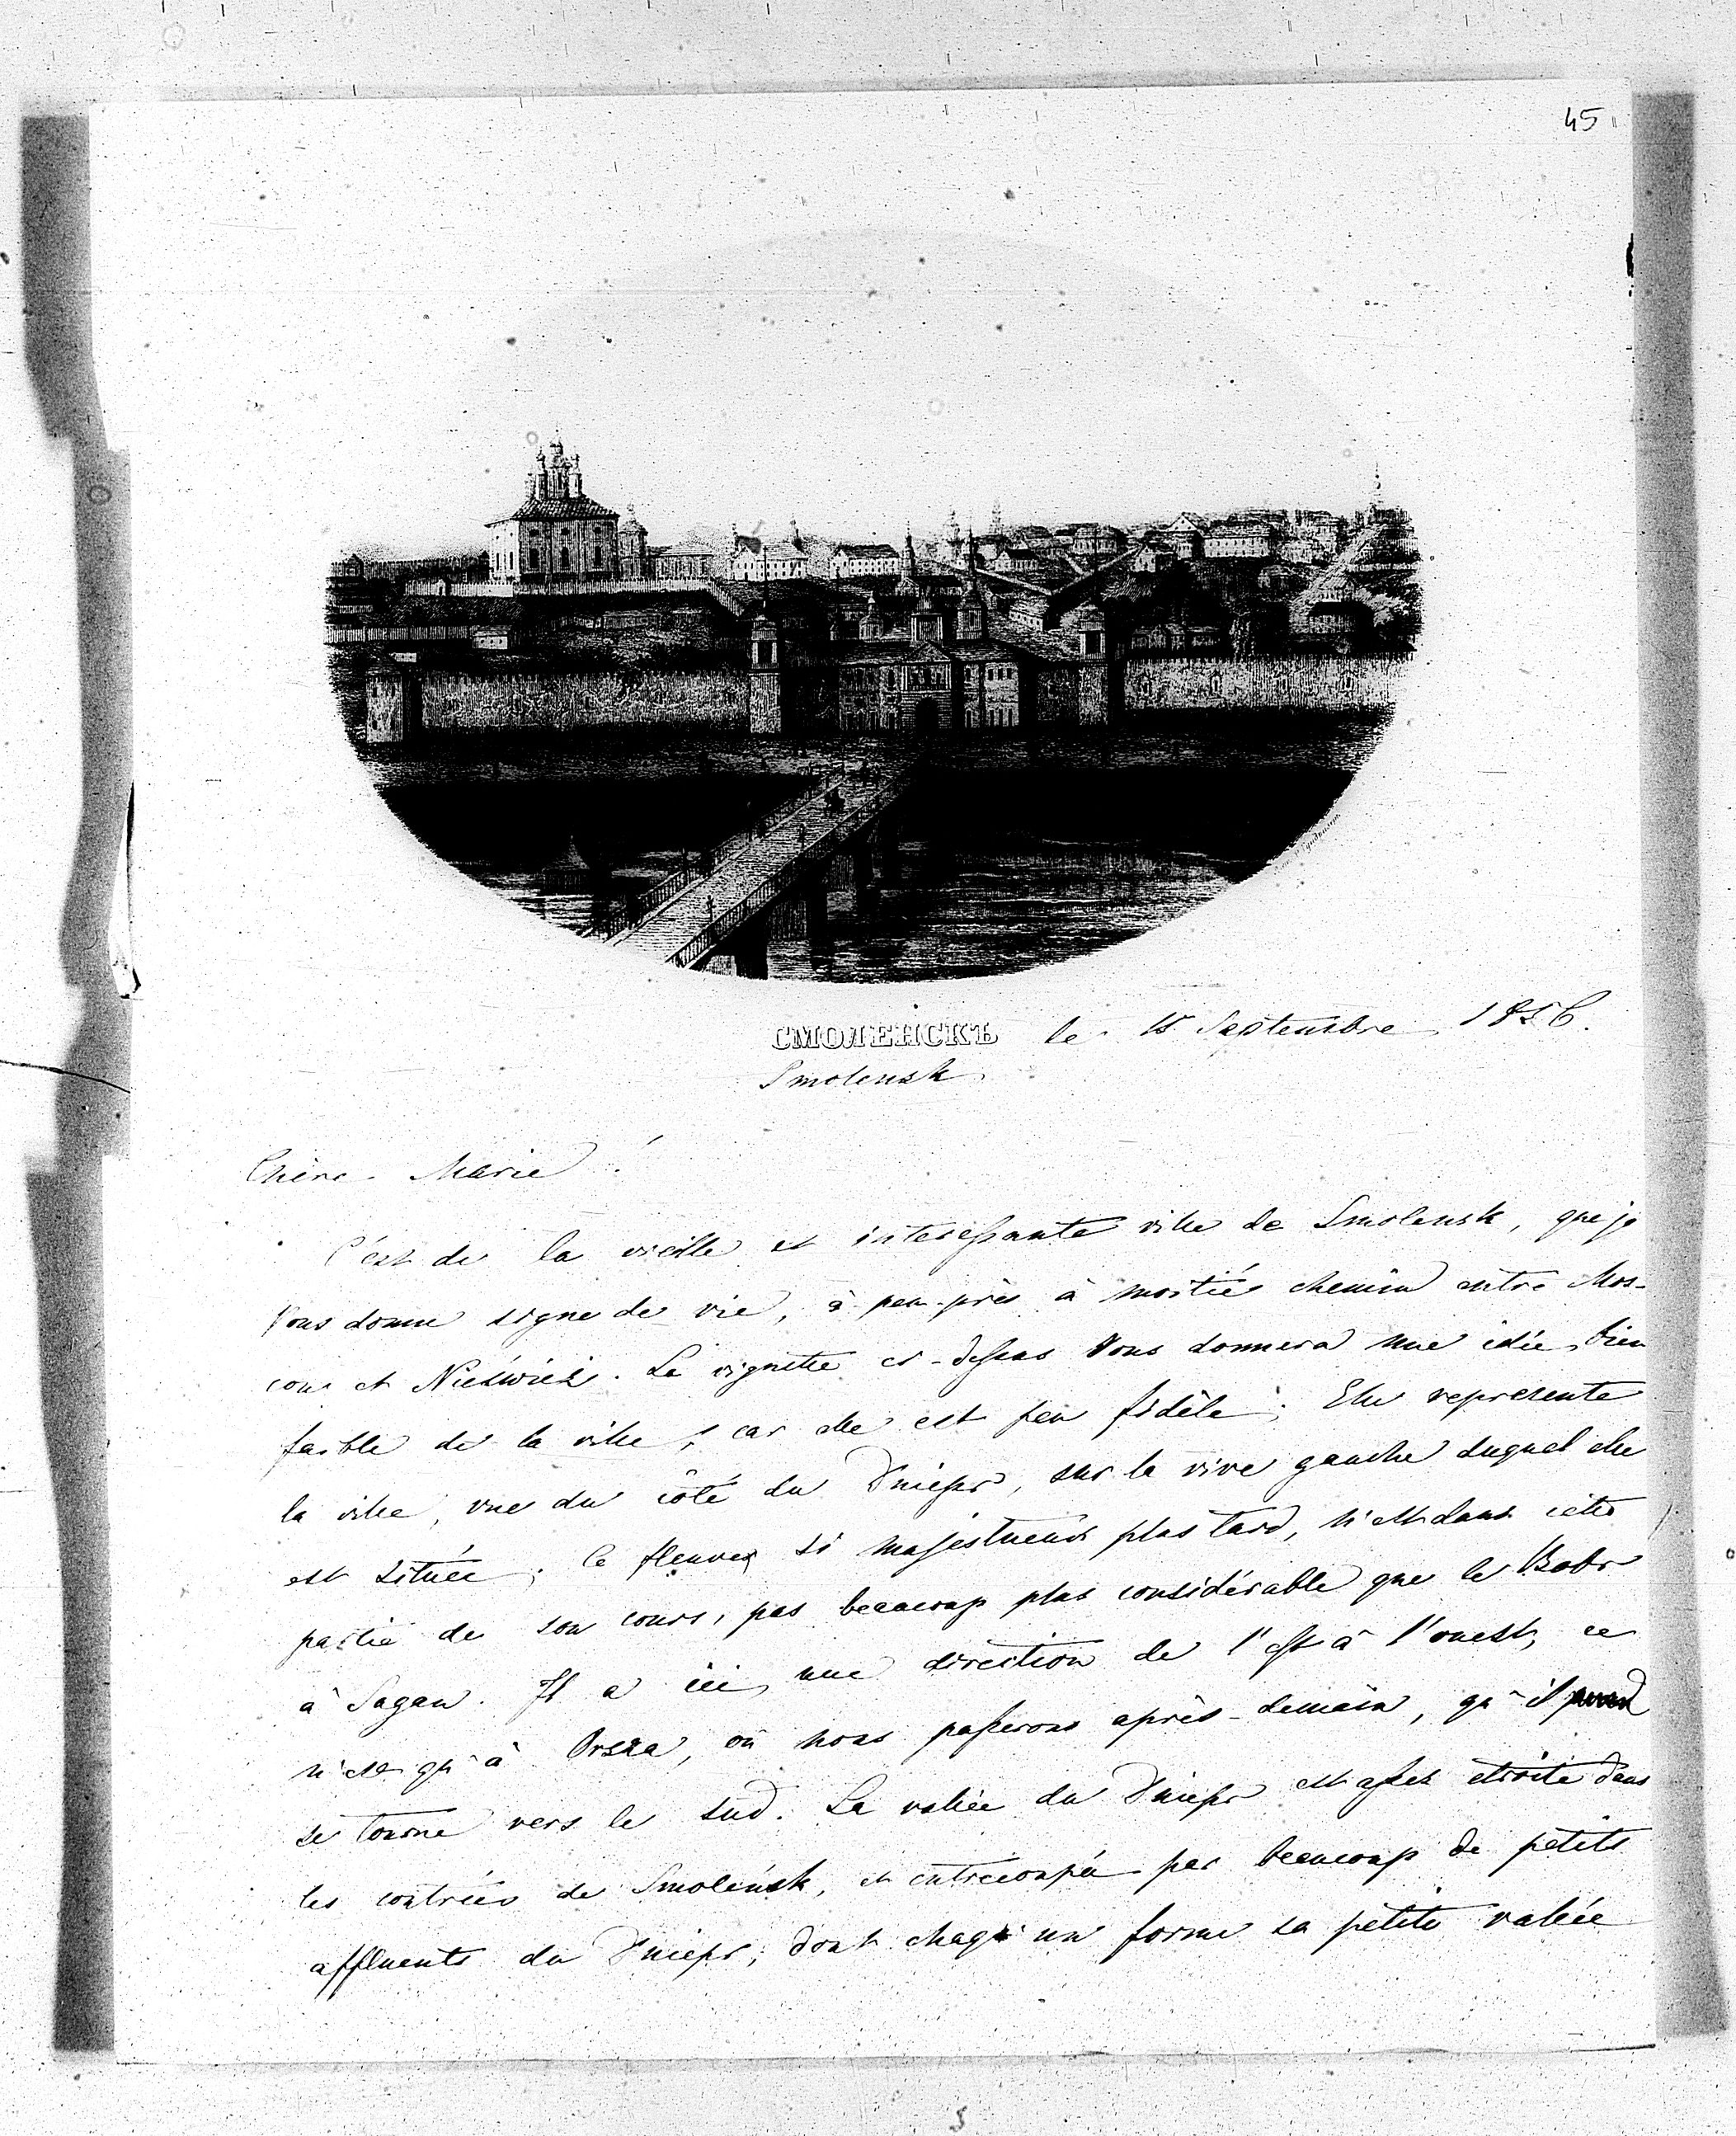 45
СМОЛЕНСКЪ le 15 Septembre 1856.
Smolensk
Chère Marie !
C'est de la vieille et interessante ville de Smolensk, que je
Vous donne signe de vie, à peu-près à moitié chemin entre Mos-
cou et Nieśwież. La vignette ci-dessus Vous donnera une idée bien
faible de la ville, car elle est peu fidèle; Elle représente
la ville, vue du côté du Dniepr, sur la rive gauche duquel elle
est située; ce fleuve si majestueux plus tard, n'est dans cette
partie de son cours, pas beaucoup plus considérable que le Bobr
à Sagan. Il a ici, une direction de l'est à l'ouest, ce
n'est qu'à Orsza, où nous passerons après-demain, qu'il
se tourne vers le sud. La vallée du Dniepr est assez étroite dans
les contrées de Smolensk, et entrecoupée par beaucoup de petits
affluents du Dniepr, dont chaqu'un forme sa petite vallée